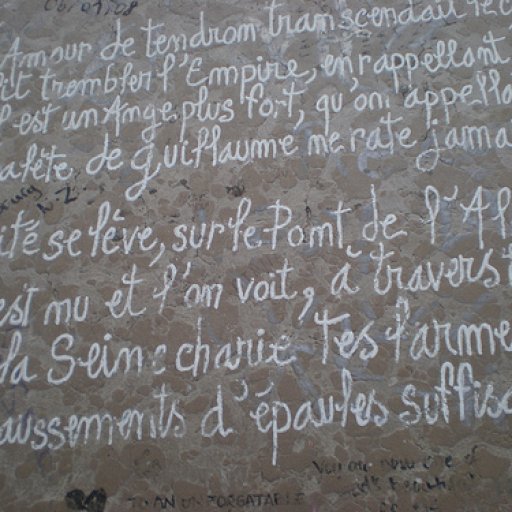 Amour de tendrom transcendait
trembler l'Empire, en rappellant
est un Ange plus fort, qu'on appell
de guillaume me rate jama
ité se lève, sur le Pont de l'Al
est nu et l'on voit, à travers
la Seine charie Tes larme
aussements d'épaules suffis
You are now one of
TO AN UNFORGATABLE